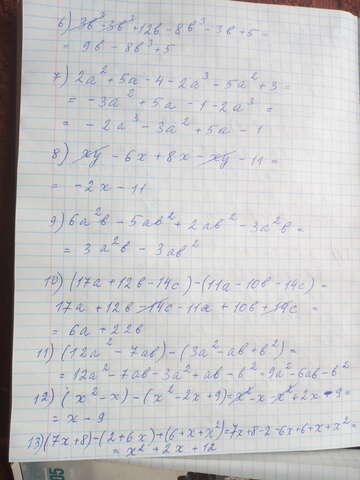 6) 3в³-3в³+12в-8в³-3в+5=
= 9в-8в³+5
7) 2a²+5a-4-2a³-5a²+3=
= -3a²+5a-1-2a³=
= -2a³-3a²+5a-1
8) xy-6x+8x-xy-11=
= -2x-11
9) 6a²в-5aв²+2aв²-3a²в=
= 3a²в-3aв²
10) (17a+12в-14c)-(11a-10в-14c)=
17a+12в-14c-11a+10в+14c=
= 6a+22в
11) (12a²-7aв)-(3a²-aв+в²)=
= 12a²-7aв-3a²+aв-в²=9a²-6aв-в²
12) (x²-x)-(x²-2x+9)=x²-x-x²+2x-9=
= x-9
13) (7x+8)-(2+6x)+(6+x+x²)=7x+8-2-6x+6+x+x²=
= x²+2x+12